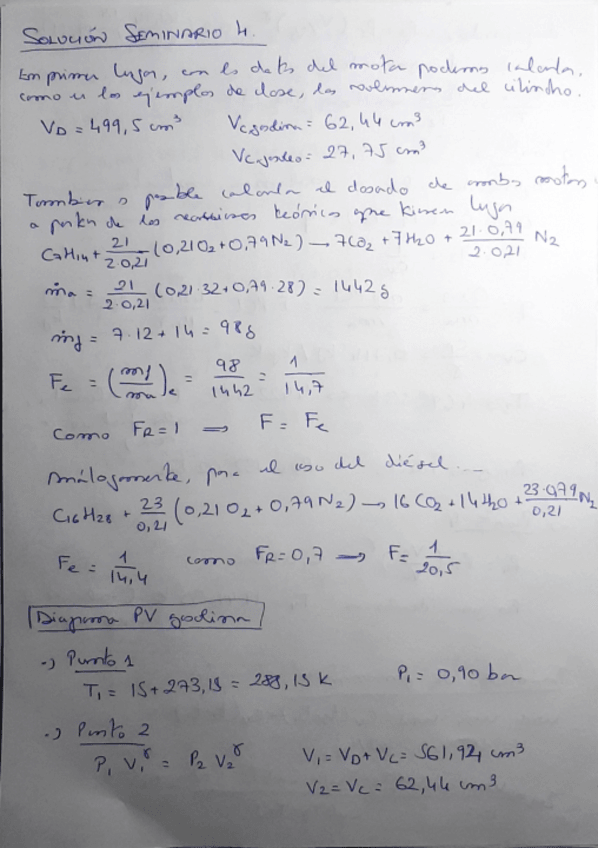 SOLUCIÓN SEMINARIO 4.
En primer lugar, con los datos del motor podemos calcular,
como en los ejemplos de clase, los volúmenes del cilindro.
VD = 499,5 cm³ Vc,gasolina = 62,44 cm³
Vc,gasóleo = 27,75 cm³
También es posible calcular el dosado de ambos motores
a partir de las reacciones teóricas que tienen lugar
C7H14 + 21/2·0,21 (0,21O2 + 0,79N2) → 7CO2 + 7H2O + 21·0,79/2·0,21 N2
ṁa = 21/2·0,21 (0,21·32 + 0,79·28) = 1442 g
ṁf = 7·12 + 14 = 98 g
Fe = (ṁf/ṁa)e = 98/1442 = 1/14,7
Como FR = 1 ⟹ F = Fe
Análogamente, para el caso del diésel...
C16H28 + 23/0,21 (0,21O2 + 0,79N2) → 16CO2 + 14H2O + 23·0,79/0,21 N2
Fe = 1/14,4 como FR = 0,7 ⟹ F = 1/20,5
Diagrama PV gasolina
·) Punto 1
T1 = 15 + 273,15 = 288,15 K P1 = 0,90 bar
·) Punto 2
P1 V1^γ = P2 V2^γ V1 = VD + VC = 561,94 cm³
V2 = VC = 62,44 cm³